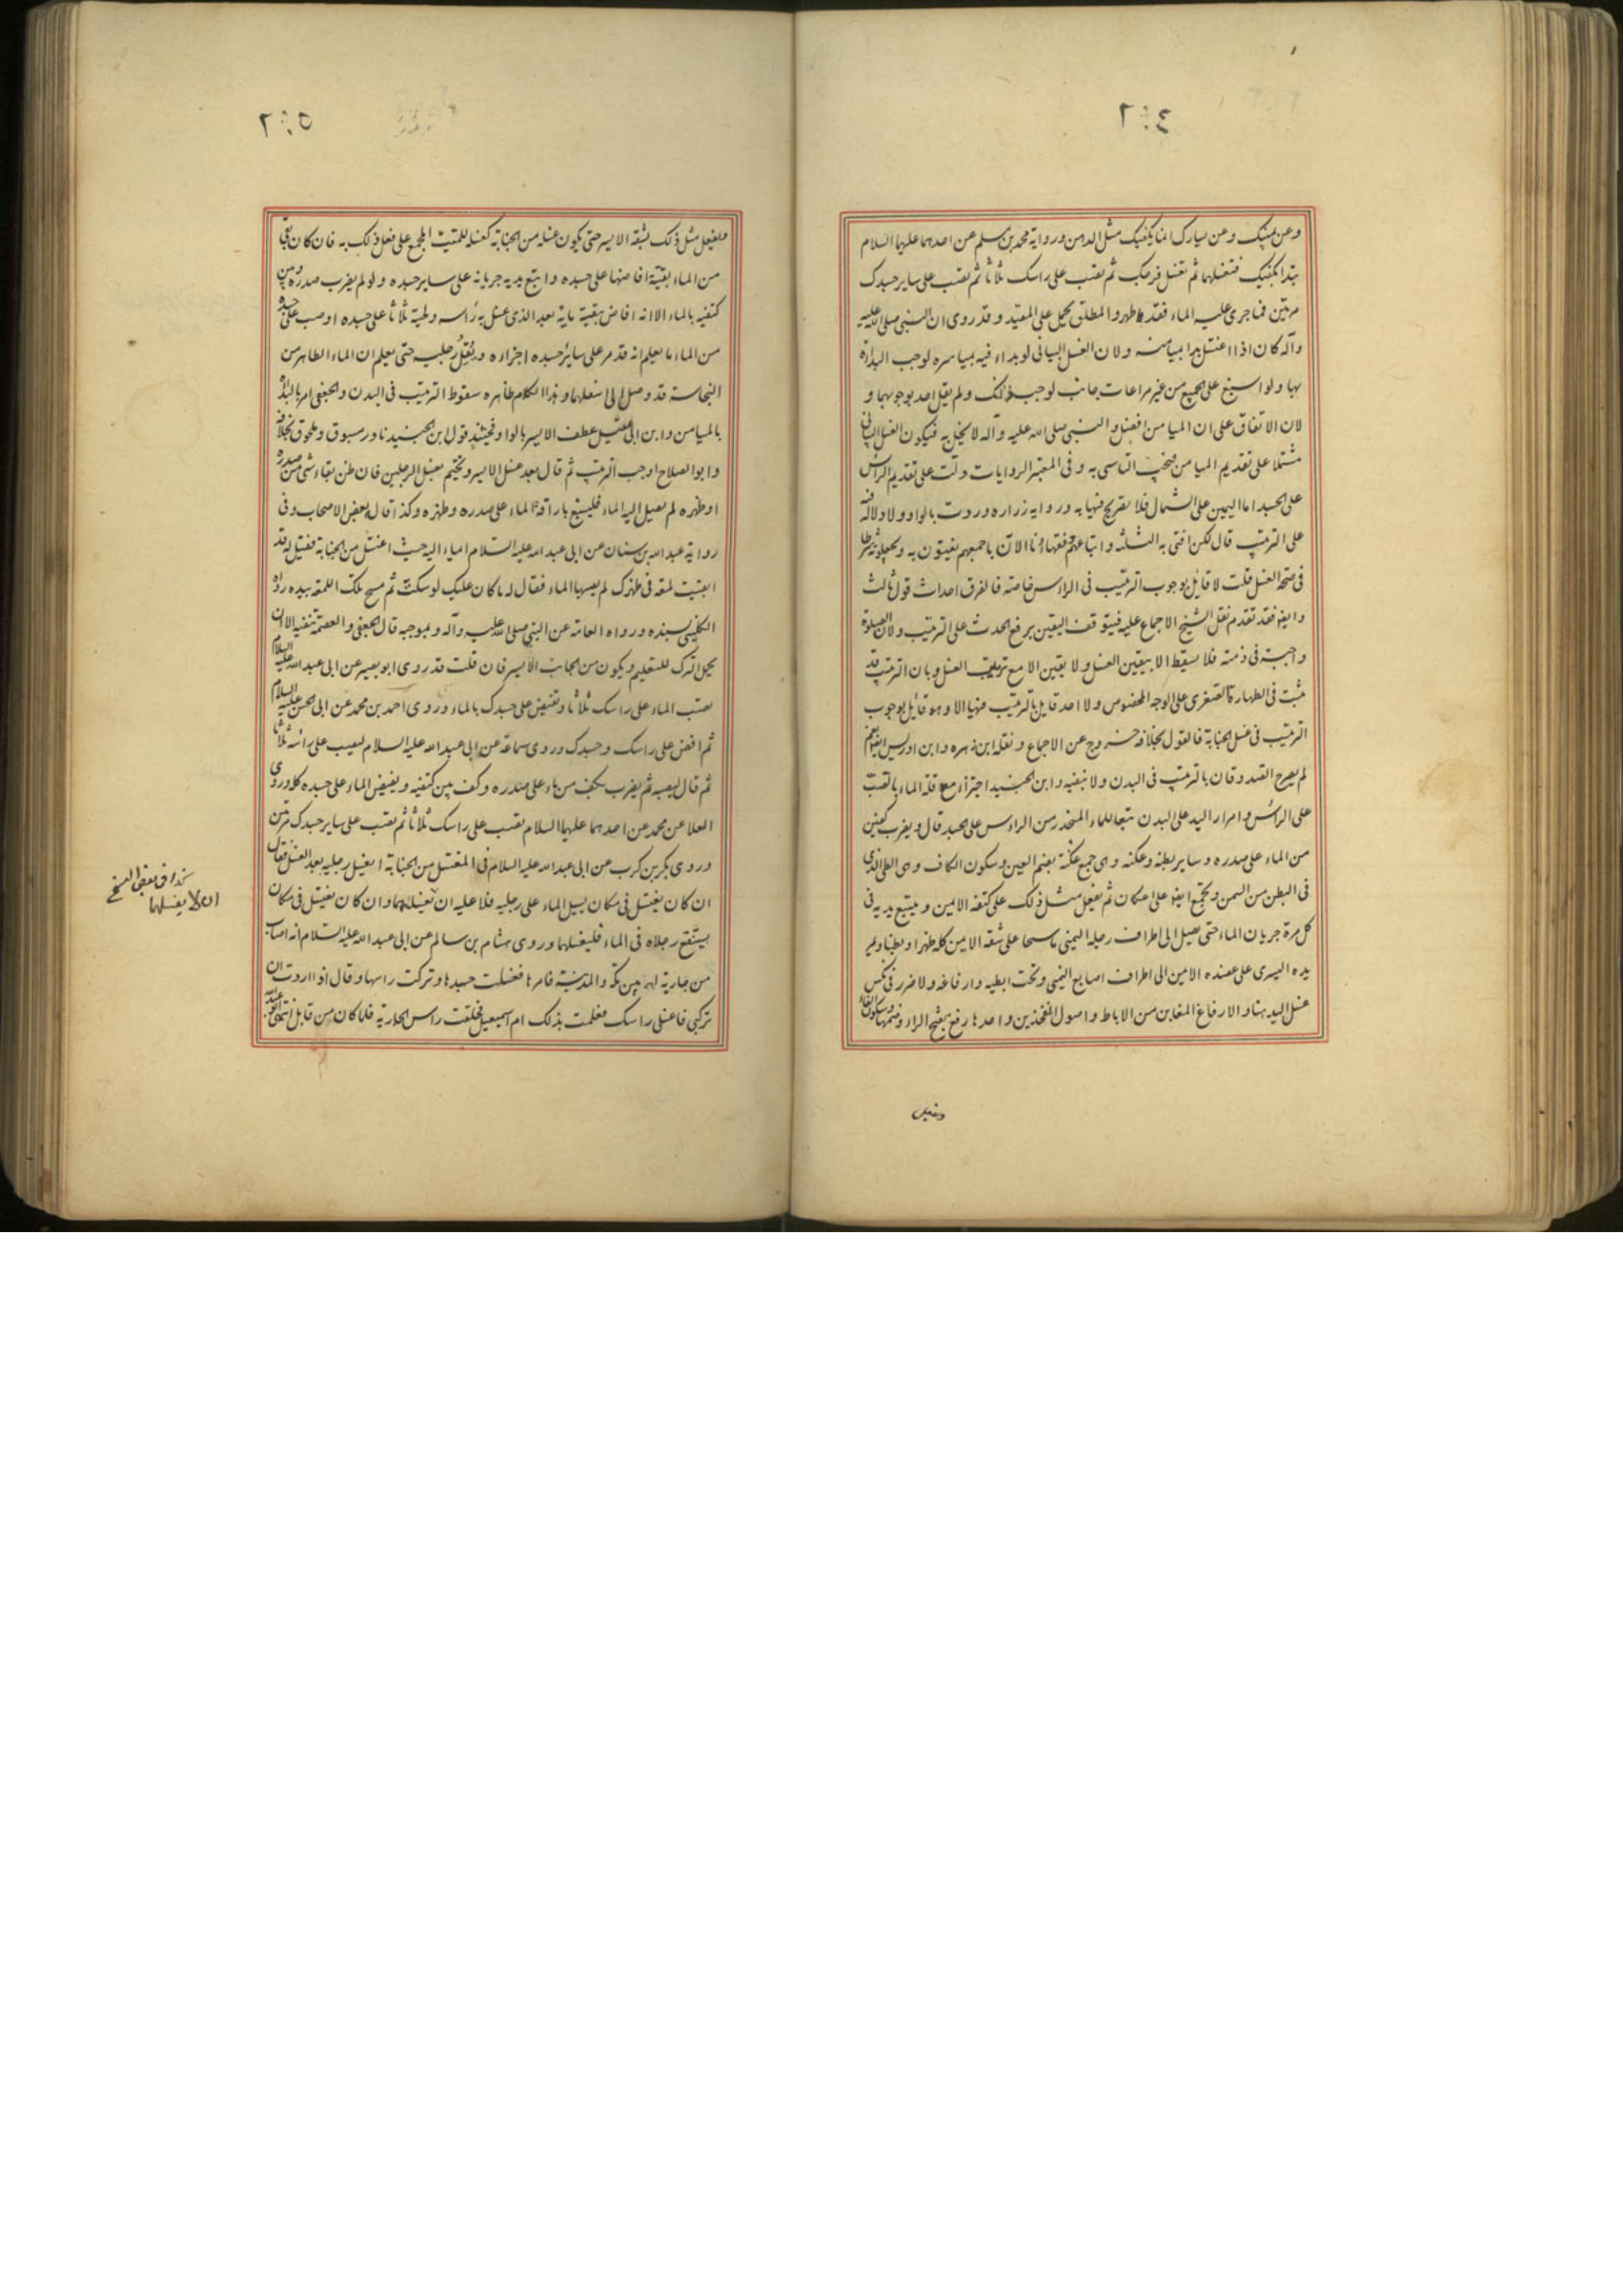 وعن يمينك وعن يسارك انما يكفيك مثل الدهن ورواية محمد بن مسلم عن احدهما عليهما السلام
تبدا بكفيك فتغسلهما ثم تغسل فرجك ثم تصب على راسك ثلاثا ثم تصب على ساير جسدك
مرتين فما جرى عليه الماء فقد طهر والمطلق يحمل على المقيد وقد روى ان النبي صلى الله عليه
وآله كان اذا اغتسل بدا بميامنه ولان الغسل البياني لو بداء فيه بمياسره لوجب البدأة
بها ولو اسبغ على الجميع من غير مراعات جانب لوجب ذلك ولم يقل احد بوجوبهما و
لان الاتفاق على ان الميامن افضل والنبي صلى الله عليه وآله لا يخل به فيكون الغسل البياني
مشتملا على تقديم الميامن فيجب التاسى به وفى المعتبر الروايات دلت على تقديم الرأس
على الجسد اما اليمين على الشمال فلا تصريح فيها به ورواية زراره وردت بالواو ولا دلالة فيه
على الترتيب قال لكن افتى به الثلثه واتباعهم وفقهاؤنا الآن باجمعهم يفتون به ويجعلونه شرطا
فى صحة الغسل قلت لا قايل بوجوب الترتيب فى الرأس خاصة فالفرق احداث قول ثالث
وايضا فقد تقدم نقل الشيخ الاجماع عليه فيتوقف اليقين برفع الحدث على الترتيب ولان الصلوة
واجبة فى ذمته فلا يسقط الا بيقين الغسل ولا يقين الا مع ترتيب الغسل وبان الترتيب قد
ثبت فى الطهارة الصغرى على الوجه المخصوص ولا احد قايل بالترتيب فيها الا وهو قايل بوجوب
الترتيب فى غسل الجنابة فالقول بخلافه خروج عن الاجماع ونقله ابن زهره وابن ادريس ايضا نعم
لم يصرح الصدوقان بالترتيب فى البدن ولا بنفيه وابن الجنيد اجتزأ مع قلة الماء بالصب
على الرأس وامرار اليد على البدن تبعا للماء المنحدر من الرأس على الجسد قال ويضرب كفين
من الماء على صدره وساير بطنه وعكنه وهى جمع عكنة بضم العين وسكون الكاف وهى الطى الذى
فى البطن من السمن ويجمع ايضا على اعكان ثم يفعل مثل ذلك على كتفه الايمن ويتبع يديه فى
كل مرة جريان الماء حتى يصل الى اطراف رجله اليمنى ماسحا على شقه الايمن كله ظهرا وبطنا ويمر
يده اليسرى على عضده الايمن الى اطراف اصابع اليمنى وتحت ابطيه وارفاغه ولا ضرر فى نكس
غسل اليد هنا والارفاغ المغابن من الاباط واصول الفخذين واحدها رفغ بفتح الراء وضمها وسكون الفاء
ويفعل
ويفعل مثل ذلك بشقه الايسر حتى يكون غسله من الجنابة كغسله للميت المجمع على فعل ذلك به فان كان بقى
من الماء بقية افاضها على جسده واتبع يديه جريانه على ساير جسده ولو لم يضرب صدره وبين
كتفيه بالماء الا انه افاض بقية مايه بعد الذى غسل به رأسه ولحيته ثلاثا على جسده او صب على جسده
من الماء ما يعلم انه قد مر على ساير جسده اجزاءه ويقل رجليه حتى يعلم ان الماء الطاهر من
النجاسة قد وصل الى اسفلهما وهذا الكلام ظاهره سقوط الترتيب فى البدن والجعفى امر بالبدأة
بالميامن وابن ابى عقيل عطف الايسر بالواو فحينئذ قول ابن الجنيد نادر مسبوق وملحوق بخلافه
وابو الصلاح اوجب الترتيب ثم قال بعد غسل الايسر ويختم بغسل الرجلين فان ظن بقاء شئ من صدره
او ظهره لم يصل اليه الماء فليسبغ باراقة الماء على صدره وظهره وكذا قال بعض الاصحاب وفى
رواية عبد الله بن سنان عن ابى عبد الله عليه السلام ايماء اليه حيث اغتسل من الجنابة فقيل له قد
ابقيت لمعة فى ظهرك لم يصبها الماء فقال له ما كان عليك لو سكت ثم مسح تلك اللمعة بيده رواه
الكلينى بسنده ورواه العامة عن النبي صلى الله عليه وآله وبموجبه قال الجعفى والعصمة تنفيه الا ان
يحمل الترك للتعليم ويكون من الجانب الايسر فان قلت قد روى ابو بصير عن ابى عبد الله عليه السلام
تصب الماء على راسك ثلاثا وتفيض على جسدك بالماء وروى احمد بن محمد عن ابى الحسن عليه السلام
ثم افض على راسك وجسدك وروى سماعة عن ابى عبد الله عليه السلام ليصب على رأسه ثلاثا
ثم قال بعده ثم يضرب بكف من ماء على صدره وكف بين كتفيه ويفيض الماء على جسده كله وروى
العلا عن محمد عن احدهما عليهما السلام تصب على راسك ثلاثا ثم تصب على ساير جسدك مرتين
وروى بكر بن كرب عن ابى عبد الله عليه السلام فى المغتسل من الجنابة ايغسل رجليه بعد الغسل فقال
ان كان يغتسل فى مكان يسيل الماء على رجليه فلا عليه ان يغسلهما وان كان يغتسل فى مكان
يستنقع رجلاه فى الماء فليغسلهما وروى هشام بن سالم عن ابى عبد الله عليه السلام انه اصاب
من جارية له بين مكة والمدينة فامرها فغسلت جسدها وتركت راسها وقال اذا اردت ان
تركبى فاغسلى راسك فعلمت بذلك ام اسمعيل فحلقت راس الجارية فلما كان من قابل انتهى
بعض النسخ
ان لا يغسلهما